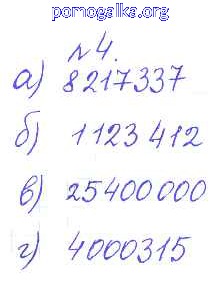 pomogalka.org
№4.
а) 8217337
б) 1123 412
в) 25400 000
г) 4000315